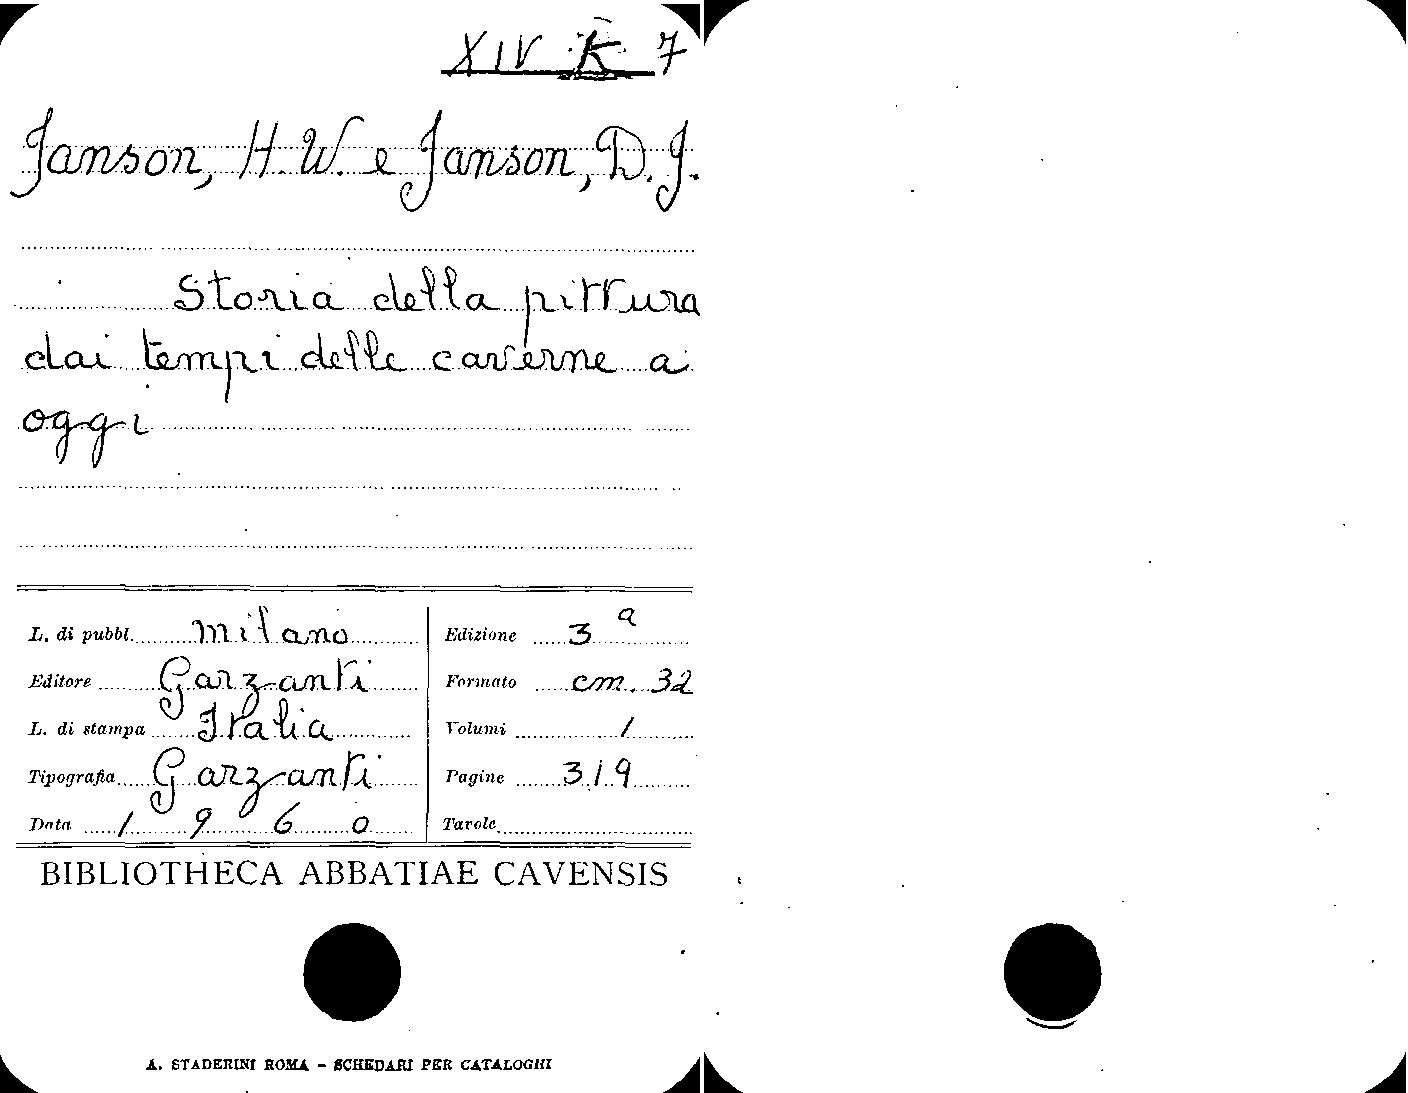 XIV K 7
Janson, H. W. e Janson, D. J.
Storia della pittura
dai tempi delle caverne a
oggi
L. di pubbl. Milano
Editore Garzanti
L. di stampa Italia
Tipografia Garzanti
Data 1960
Edizione 3a
Formato cm. 32
Volumi 1
Pagine 319
Tavole
BIBLIOTHECA ABBATIAE CAVENSIS
A. STADERINI ROMA - SCHEDARI PER CATALOGHI